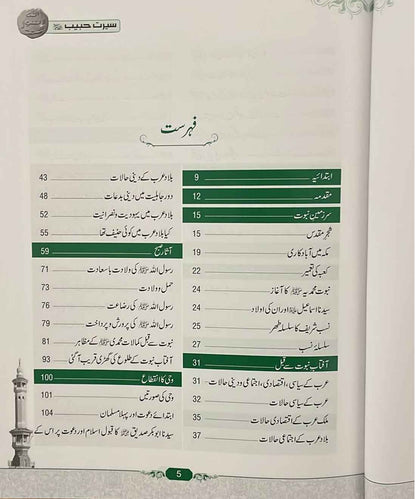 سیرت حبیب ﷺ
فہرست
ابتدائیہ 9
مقدمہ 12
سرزمین نبوت 15
شجر مقدس 15
مکہ میں آبادکاری 19
کعبہ کی تعمیر 22
نبوت محمدیہ ﷺ کا آغاز 24
سیدنا اسماعیل اور ان کی اولاد 24
نسب شریف کا سلسلہ طہر 25
سلسلۂ نسب 27
آفتاب نبوت سے قبل 31
عرب کے سیاسی، اقتصادی، اجتماعی و دینی حالات 31
عرب کے سیاسی حالات 32
ملک عرب کے اقتصادی حالات 35
بلاد عرب کے اجتماعی حالات 37
بلاد عرب کے دینی حالات 43
دور جاہلیت میں دینی بدعات 48
بلاد عرب میں یہودیت و نصرانیت 52
کیا بلاد عرب میں کوئی حنیف تھا 55
آثار صبح 59
رسول اللہ ﷺ کی ولادت باسعادت 71
حمل و ولادت 73
رسول اللہ ﷺ کی رضاعت 76
رسول اللہ ﷺ کی پرورش و پرداخت 79
نبوت سے قبل کمالات محمدی ﷺ کے مظاہر 81
آفتاب نبوت کے طلوع کی گھڑی قریب آگئی 93
وحی کا انقطاع 100
وحی کی صورتیں 101
ابتدائے دعوت اور پہلا مسلمان 104
سیدنا ابوبکر صدیق کا قبول اسلام اور دعوت پر اس کے
5